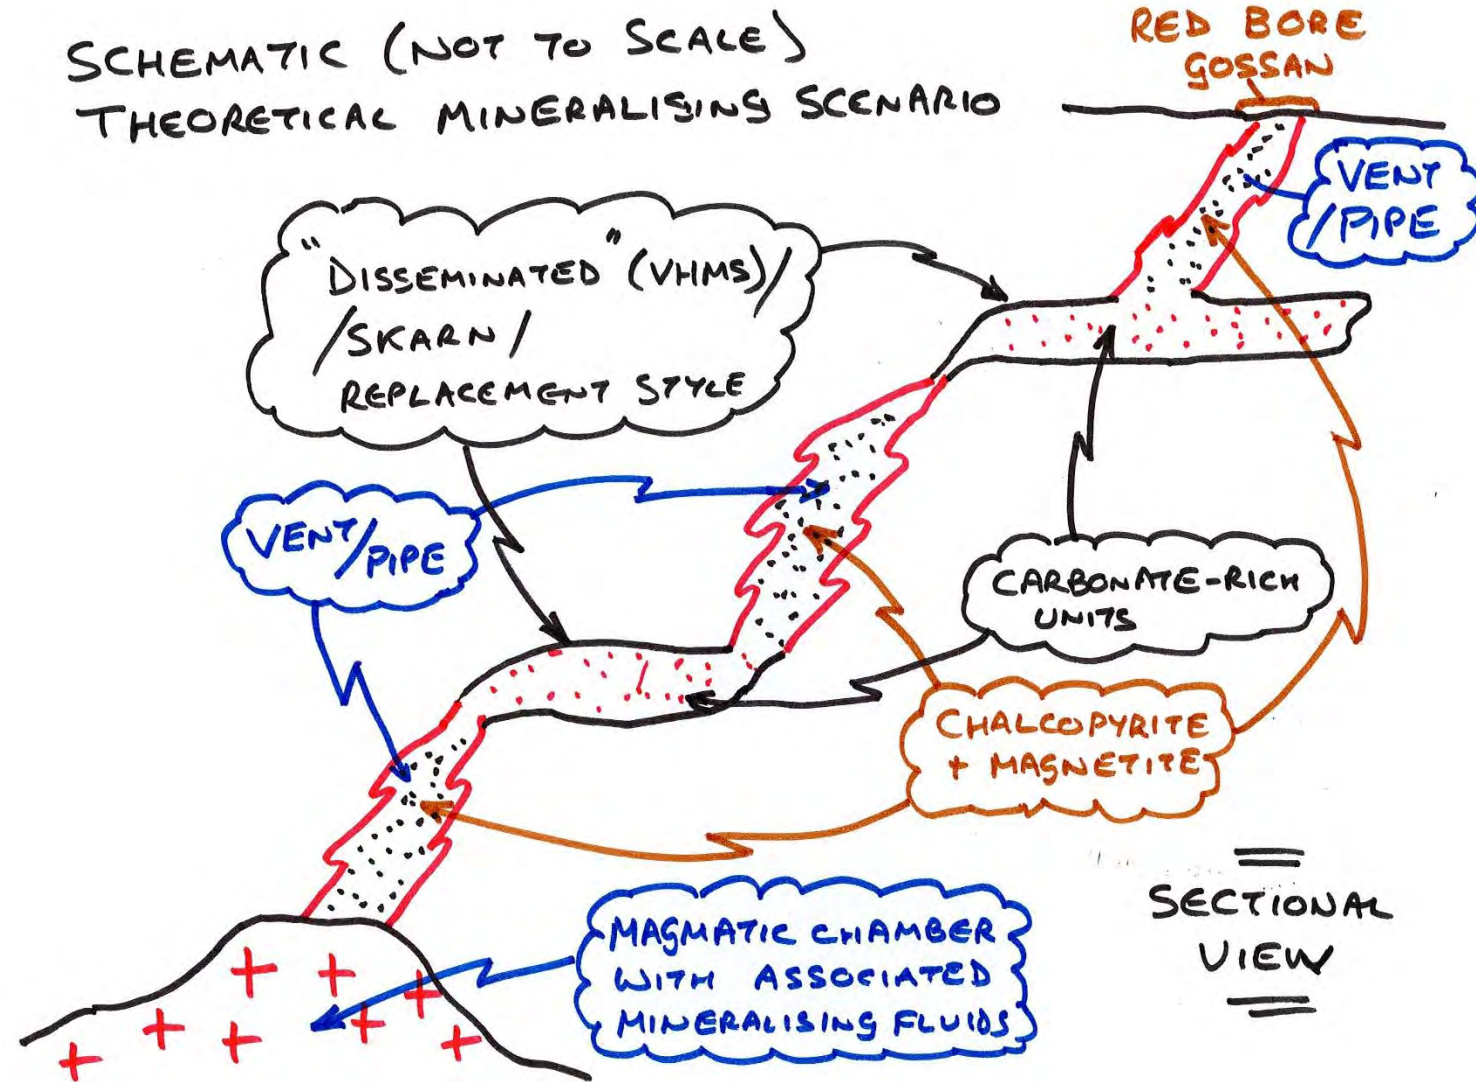 SCHEMATIC (NOT TO SCALE)
THEORETICAL MINERALISING SCENARIO
RED BORE
GOSSAN
VENT
/PIPE
"DISSEMINATED" (VHMS)/
/SKARN/
REPLACEMENT STYLE
VENT/PIPE
CARBONATE-RICH
UNITS
CHALCOPYRITE
+ MAGNETITE
MAGMATIC CHAMBER
WITH ASSOCIATED
MINERALISING FLUIDS
SECTIONAL
VIEW